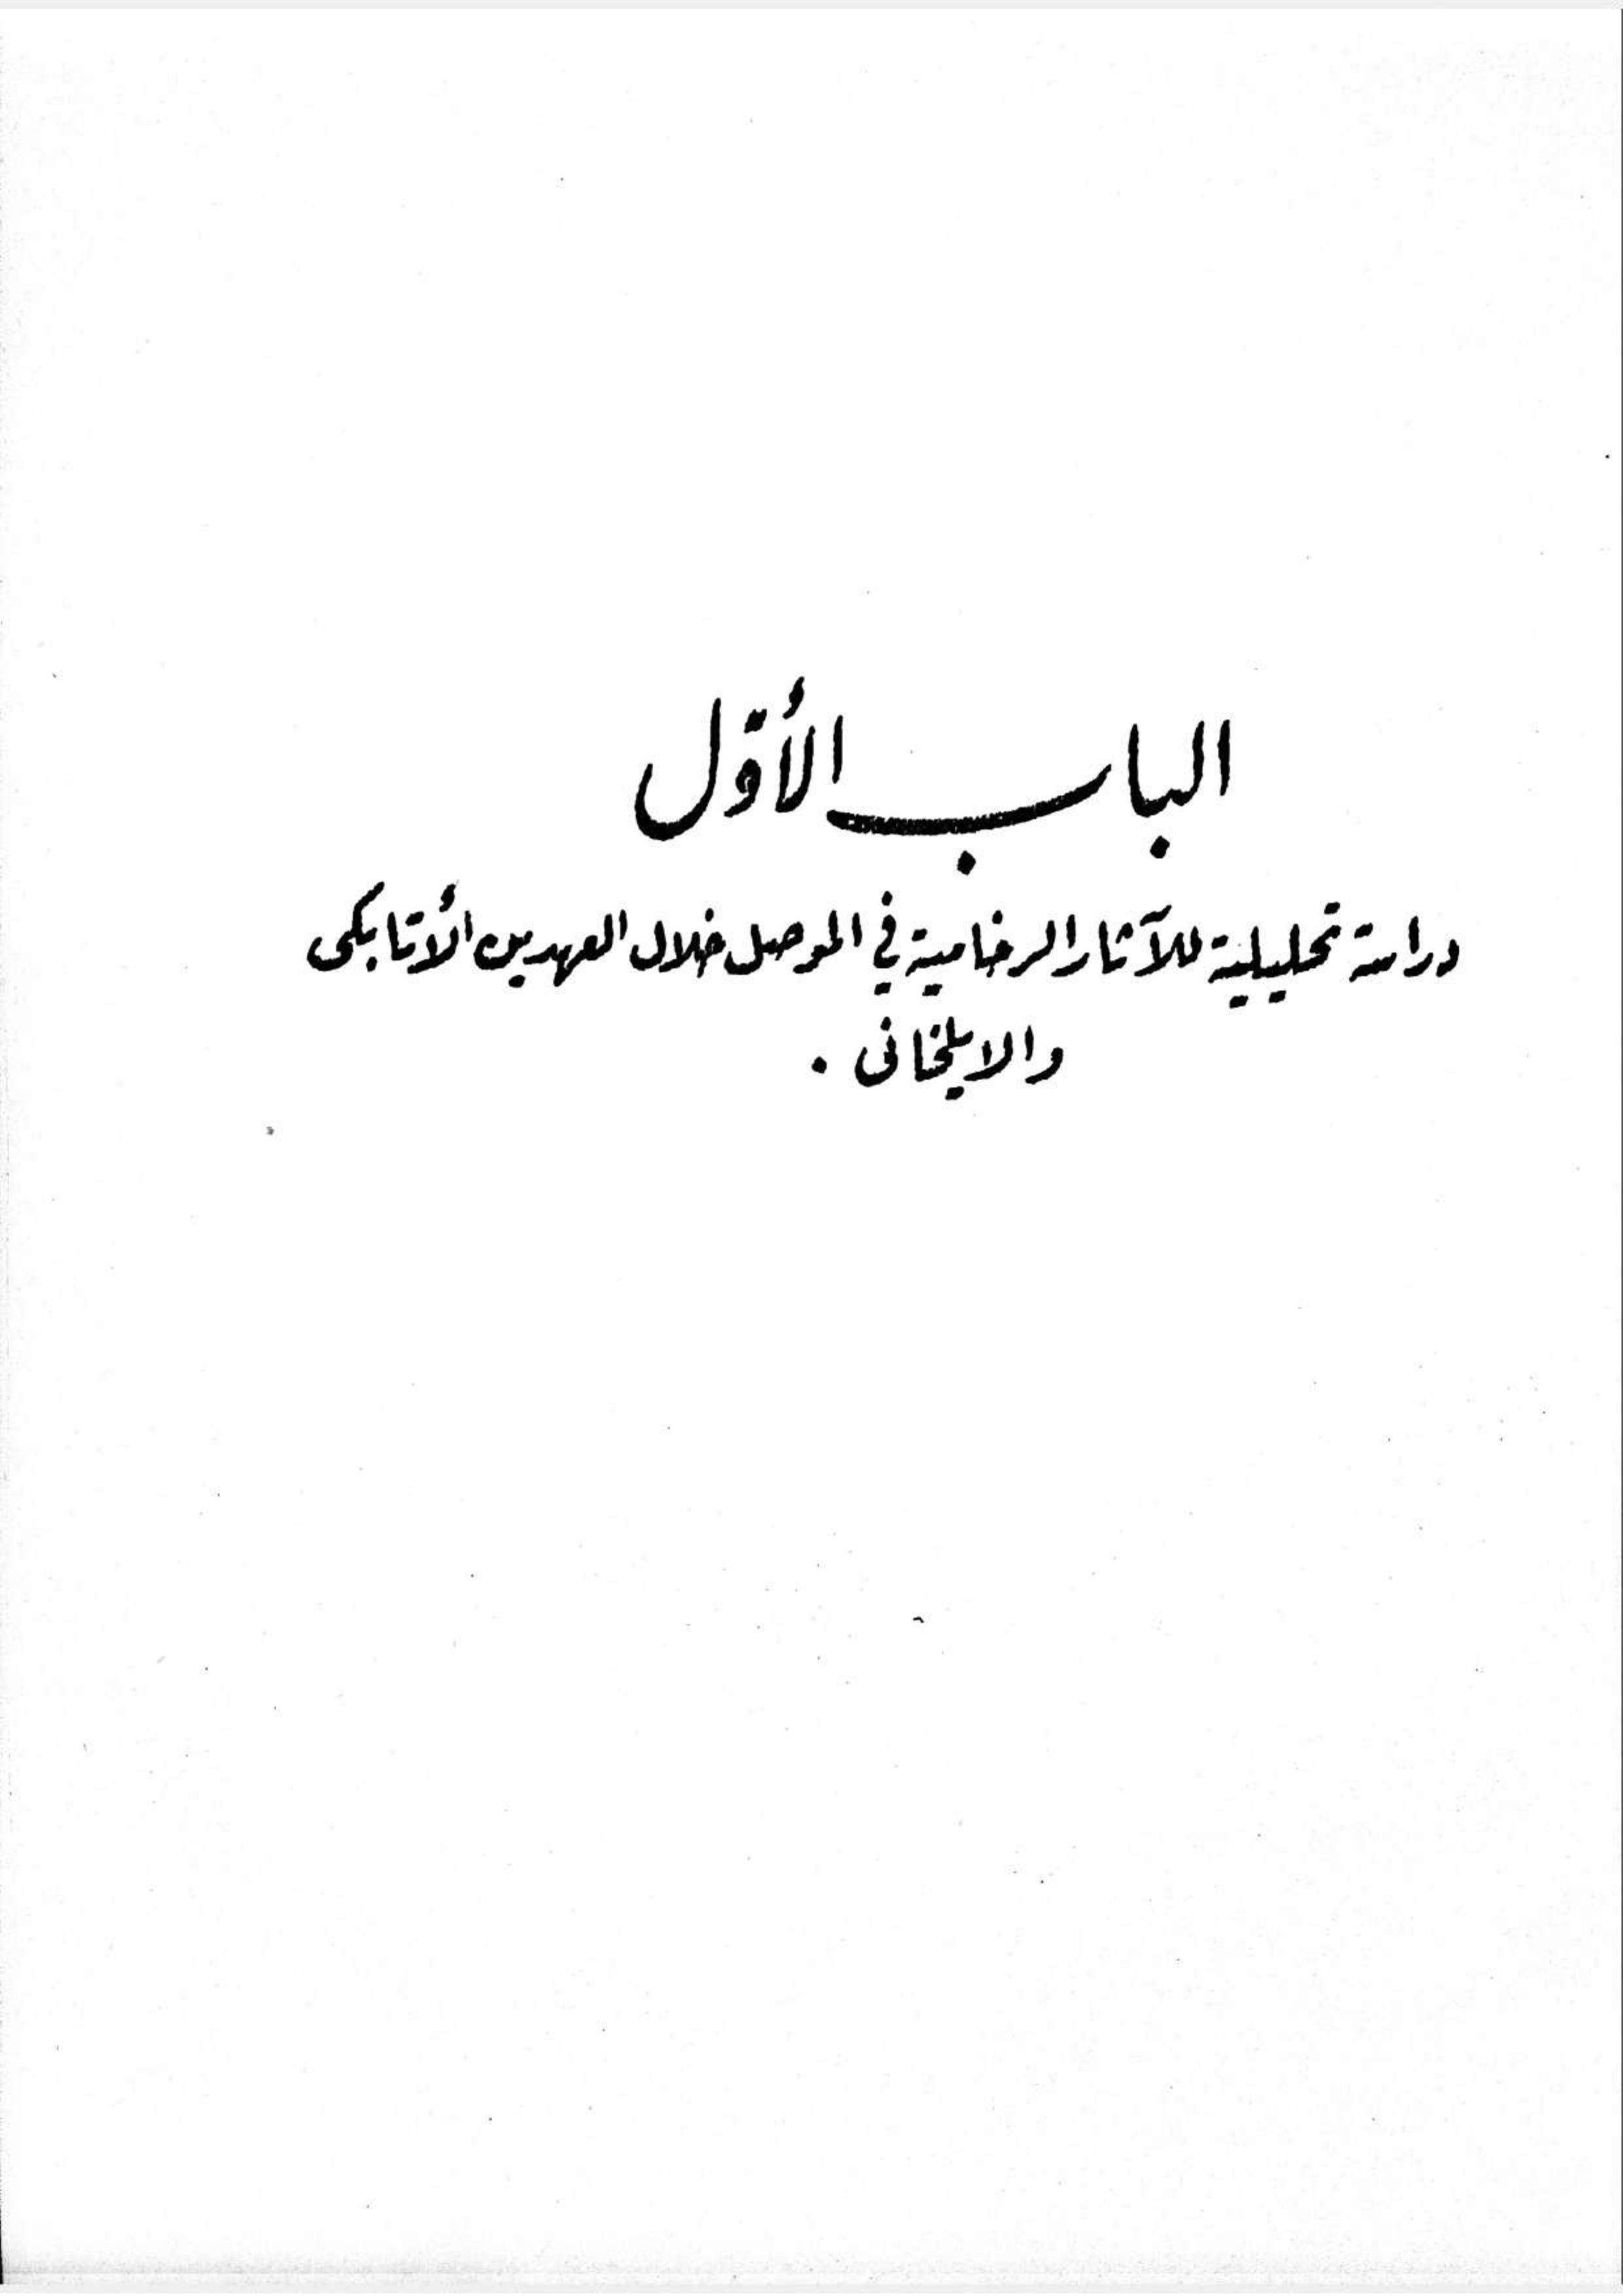 الباب الأوّل
دراسة تحليلية للآثار الرخامية في الموصل خلال العهدين الأتابكى
والايلخانى .